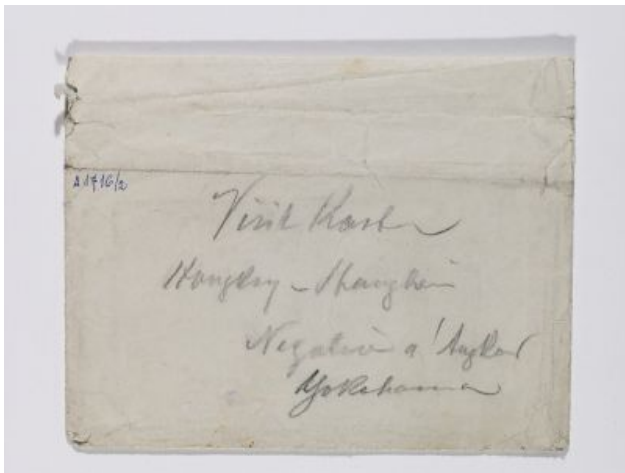 A 1716/2
Visit Karten
Hongkong - Shanghai
Negative a' Angkor
Yokohama